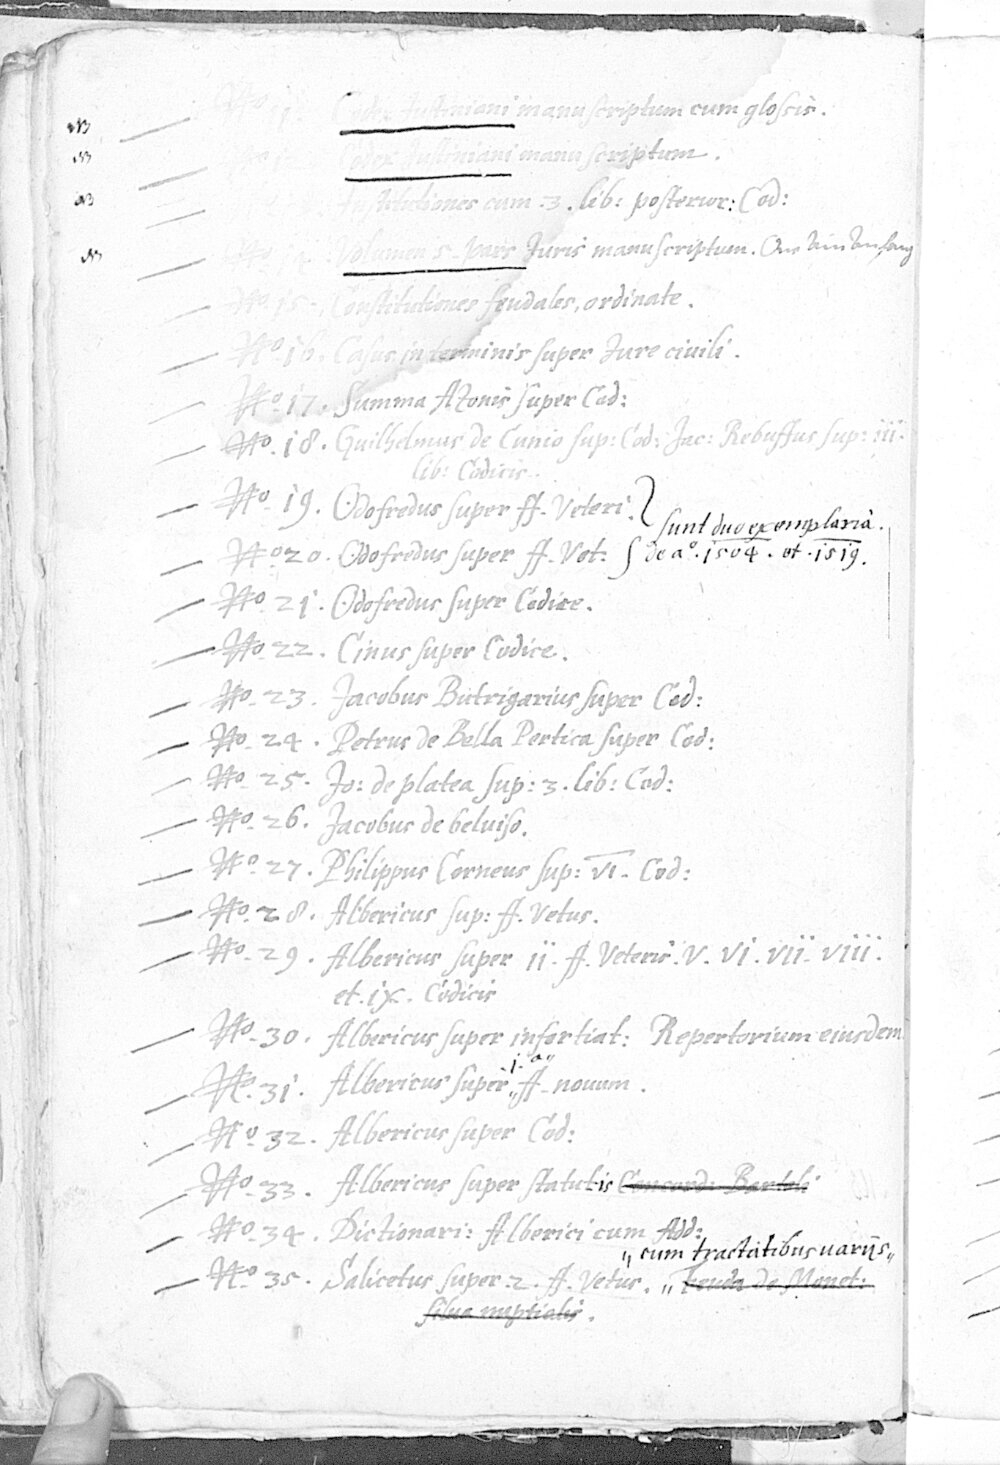 No. 11. Codex Justiniani manuscriptum cum glossis.
Codex Justiniani manuscriptum.
Institutiones cum .3. lib: posterior: Cod:
Volumen 5. pars Juris manuscriptum.
No. 15. Constitutiones feudales, ordinate.
No. 16. Casus in terminis super Jure civili.
No. 17. Summa Azonis super Cod:
No. 18. Guilhelmus de Cunio sup: Cod: Jac: Rebuffus sup: iii.
lib: Codicis.
No. 19. Odofredus super ff. Veteri.
sunt duo exemplaria.
No. 20. Odofredus super ff. Vet: de ao. 1504. et .1519.
No. 21. Odofredus super Codice.
No. 22. Cinus super Codice.
No. 23. Jacobus Butrigarius super Cod:
No. 24. Petrus de Bella Pertica super Cod:
No. 25. Jo: de platea sup: 3. lib: Cod:
No. 26. Jacobus de belviso.
No. 27. Philippus Corneus sup: VI. Cod:
No. 28. Albericus sup: ff. Vetus.
No. 29. Albericus super ii. ff. Veteris. V. VI. VII. VIII.
et. iX. Codicis
No. 30. Albericus super infortiat: Repertorium eiusdem
No. 31. Albericus super „j.a„ ff. novum.
No. 32. Albericus super Cod:
No. 33. Albericus super statutis Concord: Bartoli
No. 34. Dictionari: Alberici cum Add:
„cum tractatibus varijs„
No. 35. Salicetus super .2. ff. Vetus. „ Feuda de Monet:
silva nuptialis.